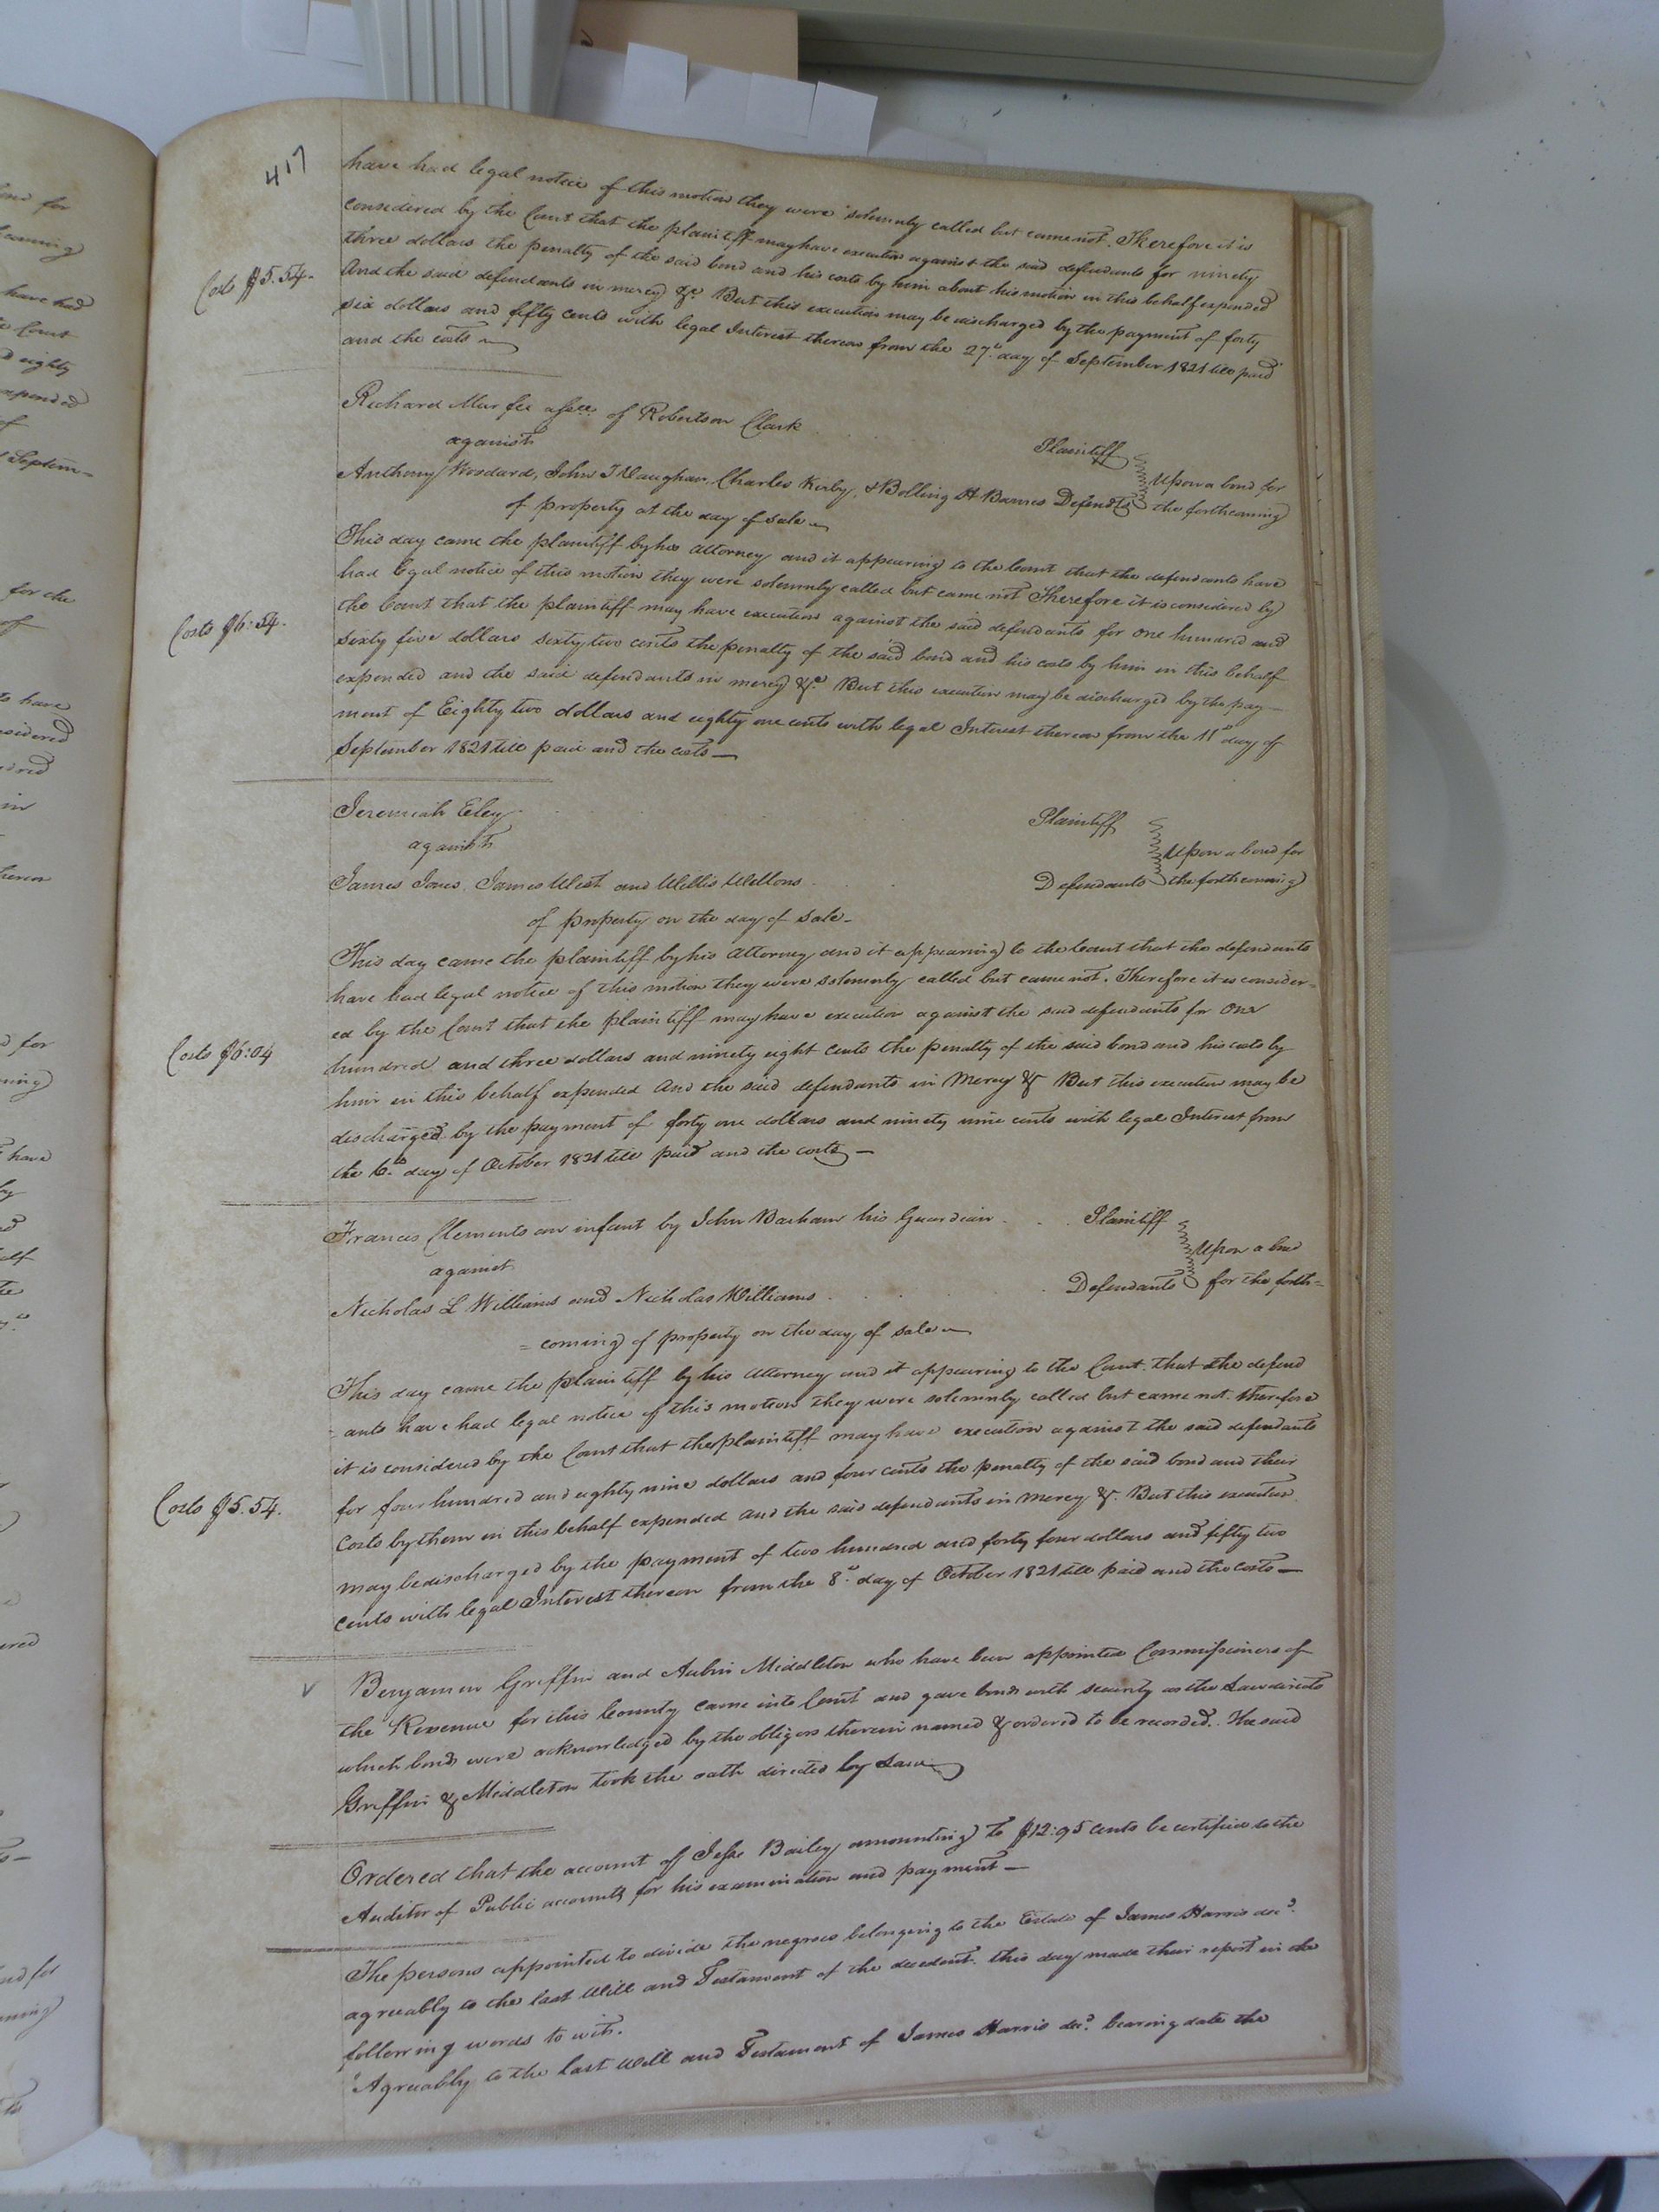 417
have had legal notice of this motion they were solemnly called but came not. Therefore it is
considered by the Court that the plaintiff may have execution against the said defendants for ninety
three dollars the penalty of the said bond and his costs by him about his motion in this behalf expended
Costs $5.54.
And the said defendants in mercy &c. But this execution may be discharged by the payment of forty
six dollars and fifty cents with legal Interest thereon from the 27th day of September 1821 till paid
and the costs
Richard Murfee assee. of Robertson Clark Plaintiff
against
Upon a bond for
Anthony Woodard, John T Vaughan, Charles Kirby, & Bolling H Barnes Defendts the forthcoming
of property at the day of sale
This day came the plaintiff by his attorney and it appearing to the Court that the defendants have
had legal notice of this motion they were solemnly called but came not Therefore it is considered by
Costs $6:54.
the Court that the plaintiff may have execution against the said defendants for one hundred and
sixty five dollars sixty two cents the penalty of the said bond and his costs by him in this behalf
expended and the said defendants in mercy &c. But this execution may be discharged by the pay-
ment of Eighty two dollars and eighty one cents with legal Interest thereon from the 11th day of
September 1821 till paid and the costs—
Jeremiah Eley Plaintiff
against
Upon a bond for
James Jones, James West and Willis Wellons Defendants the forthcoming
of property on the day of sale-
This day came the plaintiff by his attorney and it appearing to the Court that the defendants
have had legal notice of this motion they were solemnly called but came not. Therefore it is consider=
ed by the Court that the plaintiff may have execution against the said defendants for One
Costs $6:04
hundred and three dollars and ninety eight Cents the penalty of the said bond and his costs by
him in this behalf expended And the said defendants in Mercy & But this execution may be
discharged by the payment of forty one dollars and ninety nine cents with legal Interest from
the 6th day of October 1821 till paid and the costs—
Francis Clements an infant by John Barham his Guardian Plaintiff
against
Upon a bond
Nicholas L Williams and Nicholas Williams Defendants for the forth=
= coming of property on the day of sale
This day came the plaintiff by his attorney and it appearing to the Court that the defend
- ants have had legal notice of this motion they were solemnly called but came not therefore
it is considered by the Court that the plaintiff may have execution against the said defendants
for four hundred and eighty nine dollars and four cents the penalty of the said bond and their
Costs $5.54.
Costs by them in this behalf expended and the said defendants in Mercy &. But this execution
may be discharged by the payment of two hundred and forty four dollars and fifty two
cents with legal Interest thereon from the 8th day of October 1821 till paid and the costs—
Benjamin Griffin and Aubin Middleton who have been appointed Commissioners of
the Revenue for this County came into Court and gave bonds with security as the Law directs
which bonds were acknowledged by the obligors therein named & ordered to be recorded. The said
Griffin & Middleton took the oath directed by Law
Ordered that the account of Jesse Bailey amounting to $12:95 cents be certified to the
Auditor of Public accounts for his examination and payment—
The persons appointed to divide the negroes belonging to the Estate of James Harris decd.
agreeably to the last Will and Testament of the decedent. this day made their report in the
following words to wit.
"Agreeably to the last Will and Testament of James Harris decd. bearing date the